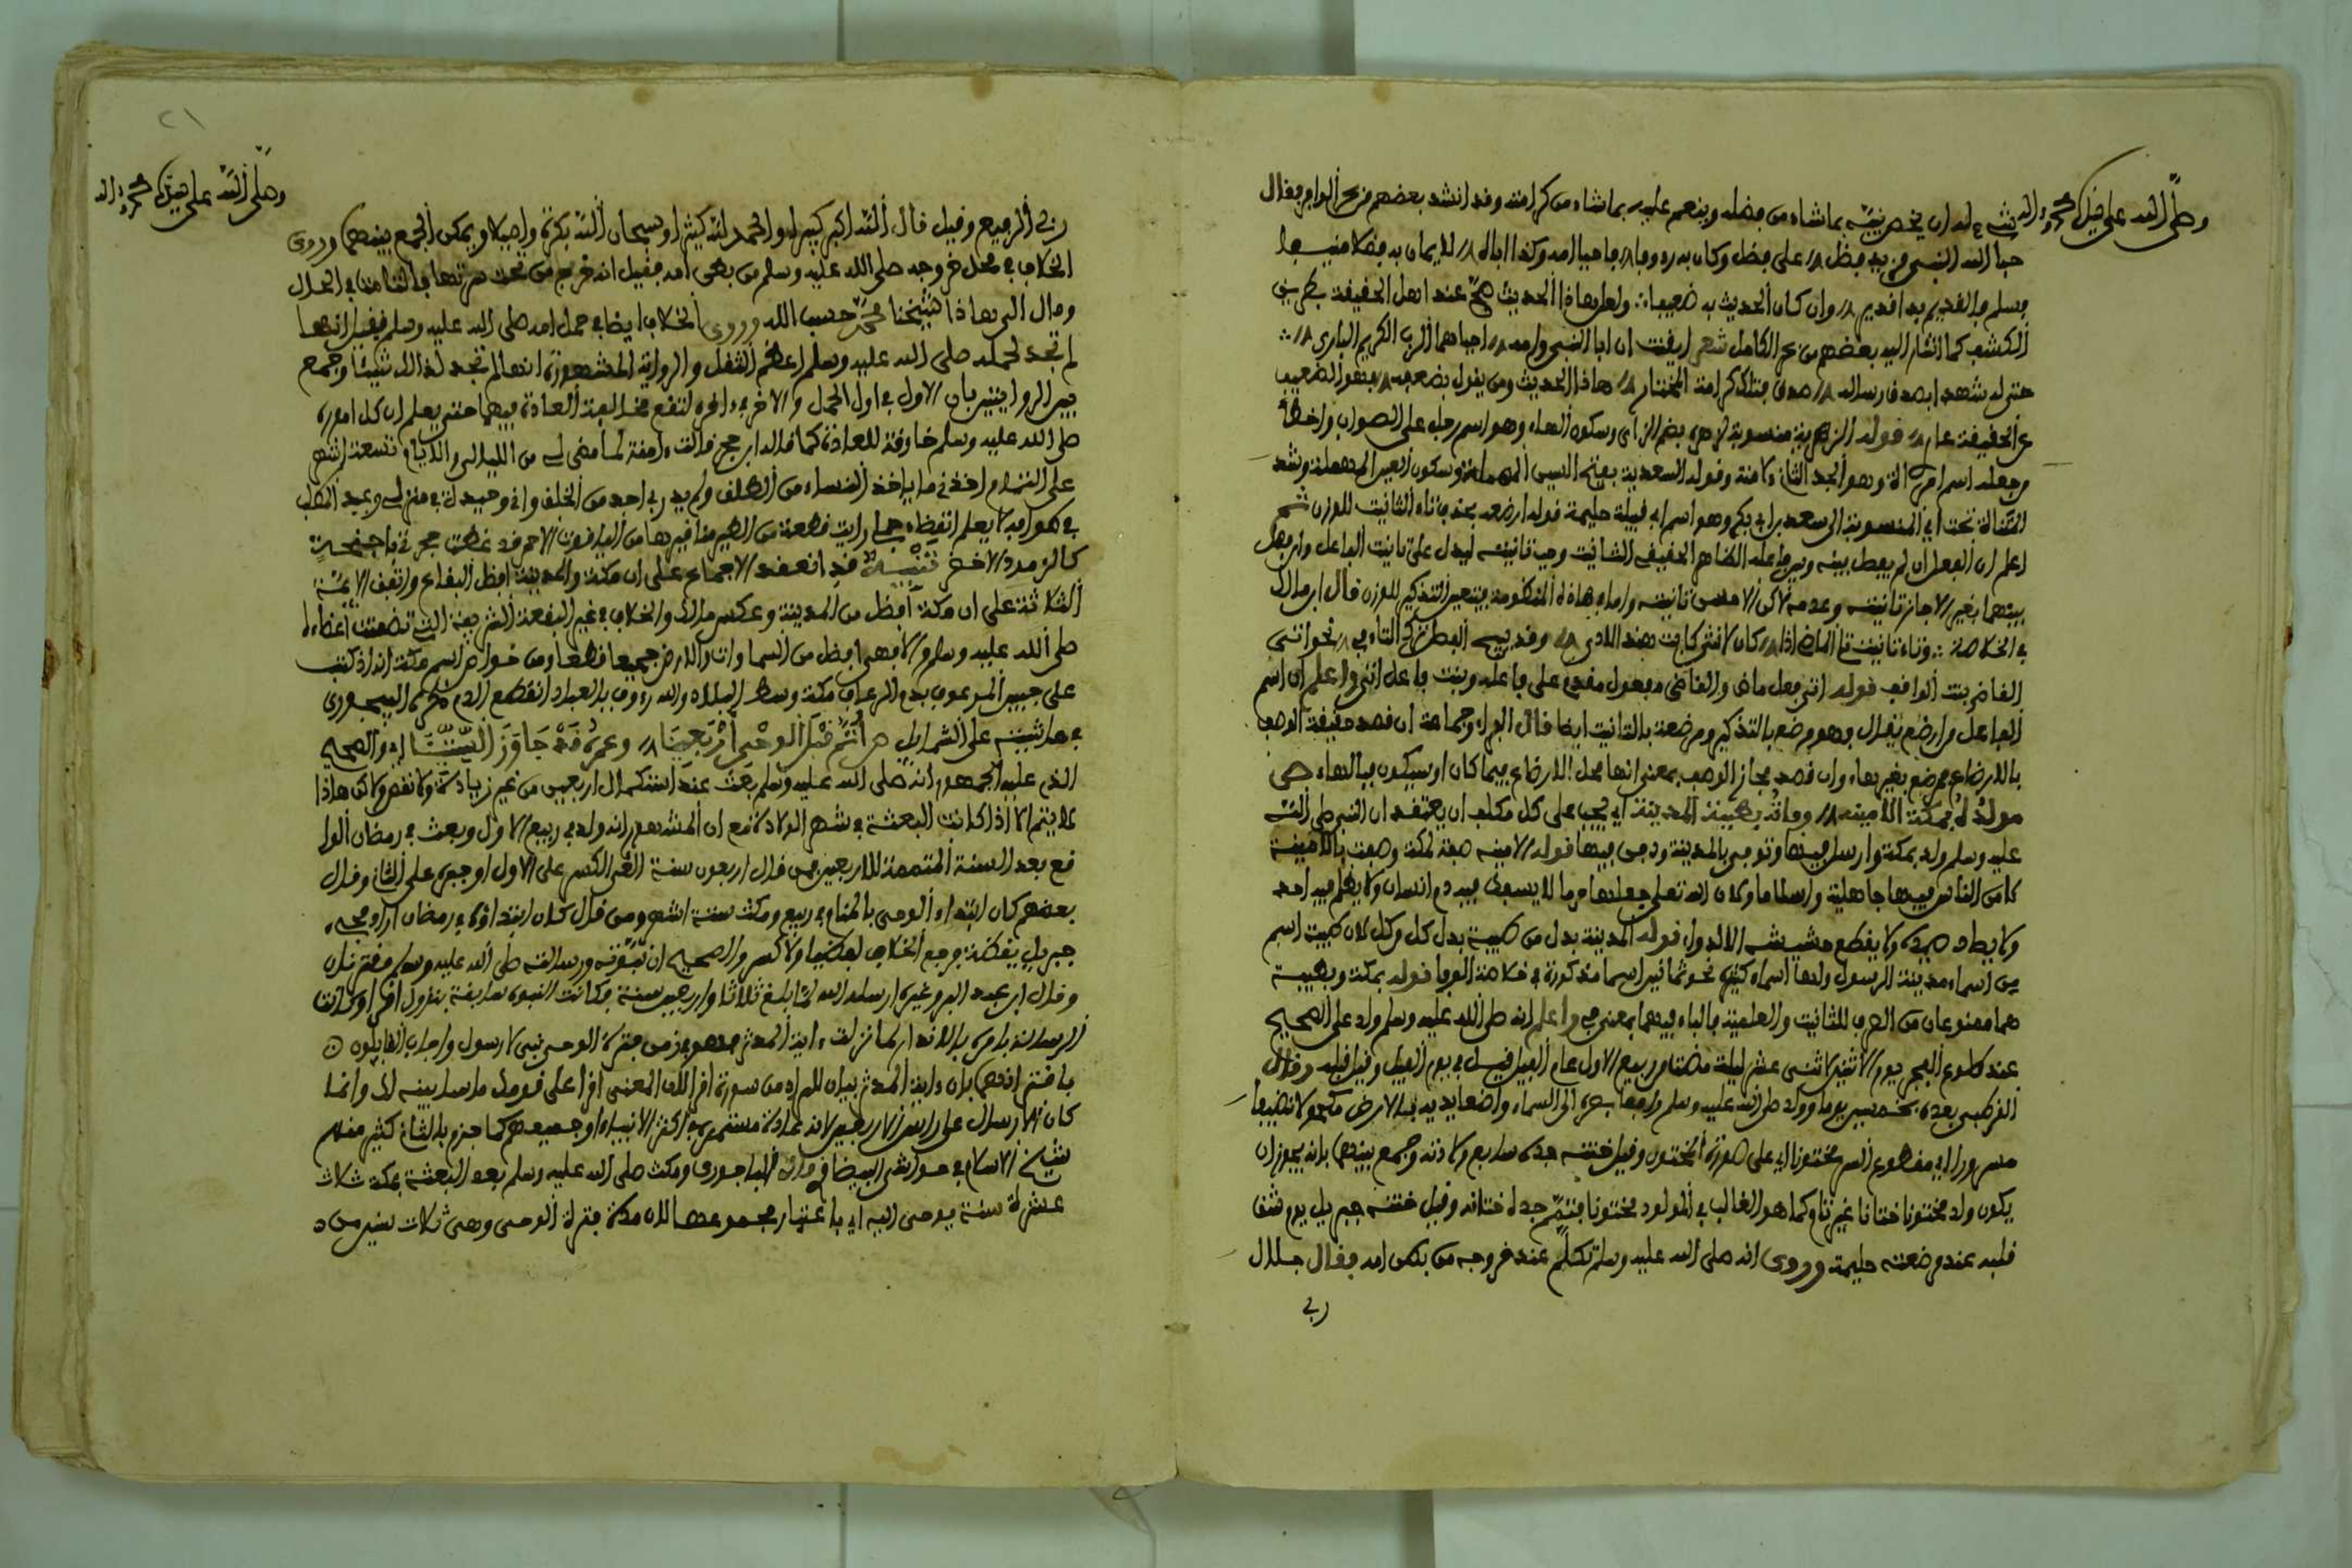 وصلى الله على سيدنا محمد وآله
شيء له ان يخص نبيه بما شاء من فضله وينعم عليه بما شاء من كرامته وقد انشد بعضهم من بحر الوافر فقال
حبا الله النبي مزيد فضل على فضل وكان به رءوفا فاحيا امه وكذا اباه لايمان به فضلا منيفا
فسلم فالقديم بذا قدير وان كان الحديث به ضعيفا ولعل هاذا الحديث صح عند اهل الحقيقة بطريق
الكشف كما اشار اليه بعضهم من بحر الكامل شعر ايقنت ان ابا النبي وامه احياهما الرب الكريم الباري
حتى له شهدا بصدق رسالة صدق فتلك كرامة المختار هاذا الحديث ومن يقول بضعفه فهو الضعيف
عن الحقيقة عار قوله الزهرية منسوبة لزهرة بضم الزاي وسكون الهاء وهو اسم رجل على الصواب واخطأ
من جعله اسم امرأة وهو الجد الثاني لامنة وقوله السعدية بفتح السين المهملة وسكون العين المهملة وشد
المثناة تحت اي المنسوبة الى سعد بن ابي بكر وهو اسم ابي قبيلة حليمة قوله ارضعه بحذف تاء التانيث للوزن ثم
اعلم ان الفعل ان لم يفصل بينه وبين فاعله الظاهر الحقيقي التانيث وجب تانيثه ليدل على تانيث الفاعل وان فصل
بينهما بغير الا جاز تانيثه وعدمه لاكن الاحسن تانيثه واما في هاذه المنظومة فيتعين التذكير للوزن قال ابن مالك
في الخلاصة وتاء تانيث تلي الماضي اذا كان لانثى كابت هند الاذى وقد يبيح الفصل ترك التاء في نحو اتى
القاضي بنت الواقف قوله اتى فعل ماض والقاضي مفعول مقدم على فاعله وبنت فاعل اتى واعلم ان اسم
الفاعل من ارضع يقال فيه وهو مرضع بالتذكير ومرضعة بالتانيث ايضا قال الفراء وجماعة ان قصد حقيقة الوصف
بالارضاع فمرضع بغير هاء وان قصد مجاز الوصف بمعنى انها محل الارضاع فيما كان او سيكون فبالهاء ص
مولده بمكة الامينة وفاته بطيبة المدينة اي يجب على كل مكلف ان يعتقد ان النبي صلى الله
عليه وسلم ولد بمكة وارسل فيها وتوفي بالمدينة ودفن فيها قوله الامينة صفة لمكة وصفت بالامينة
لامن الناس فيها جاهلية واسلاما ولان الله تعلى جعلها حرما لا يسفك فيه دم انسان ولا يظلم فيه احد
ولا يصاد صيده ولا يقطع حشيشه الا لدواء قوله المدينة بدل من طيبة بدل كل من كل لان طيبة اسم
من اسماء مدينة الرسول ولها اسماء كثيرة نحو ثمانين اسما مذكورة في خلاصة الوفا قوله بمكة وبطيبة
هما ممنوعان من الصرف للتانيث والعلمية فالباء فيهما بمعنى في واعلم انه صلى الله عليه وسلم ولد على الصحيح
عند طلوع الفجر يوم الاثنين لاثني عشر ليلة مضت من ربيع الاول عام الفيل قيل في يوم الفيل وقيل قبله وقال
القرطبي بعده بخمسين يوما وولد صلى الله عليه وسلم رافعا بصره الى السماء واضعا يديه بالارض مكحولا نظيفا
مسرورا اي مقطوع السر مختونا اي على صورة المختون وقيل ختنه جده سابع ولادته وجمع بينهما بانه يجوز ان
يكون ولد مختونا ختانا غير تام كما هو الغالب في المولود مختونا فتمم جده ختانه وقيل ختنه جبريل يوم شق
قلبه عند مرضعته حليمة وروى انه صلى الله عليه وسلم تكلم عند خروجه من بطن امه فقال جلال
ربي
٢١
وصلى الله على سيدنا محمد وآله
ربي الرفيع وقيل قال الله اكبر كبيرا والحمد لله كثيرا وسبحان الله بكرة واصيلا ويمكن الجمع بينهما وروى
الخلاف في محل خروجه صلى الله عليه وسلم من بطن امه فقيل انه خرج من تحت سرتها في التامن في الحال
ومال الى هاذا شيخنا محمد حسب الله وروى الخلاف ايضا في حمل امه صلى الله عليه وسلم فقيل انها
لم تجد لحمله صلى الله عليه وسلم اعظم الثقل والرواية المشهورة انها لم تجد لذالك شيئا وجمع
بين الروايتين بان الاول في اول الحمل والاخر في ءاخره لتقع مخالفة العادة فيهما حتى يعلم ان كل اموره
صلى الله عليه وسلم خارقة للعادة كما قاله ابن حجر قالت ءامنة لما مضى لي من الليالي والايام تسعة اشهر
على التمام اخذني ما ياخذ النساء من الطلق ولم يدر بي احد من الخلق واني وحيدة في منزلي وعبد المطلب
في طوافه لا يعلم القضاء فرايت قطعة من الطير مناقيرها من الياقوت الاحمر قد غطت حجرتي باجنحة
كالزمرد الاخضر تنبيه قد انعقد الاجماع على ان مكة والمدينة افضل البقاع واتفق الائمة
الثلاثة على ان مكة افضل من المدينة وعكس مالك والخلاف في غير البقعة الشريفة التي تضمنت اعضاءه
صلى الله عليه وسلم والا فهي افضل من السماوات والارض جميعا قطعا ومن خواص اسم مكة انه اذا كتب
على جبين المرعوف بدم الرعاف مكة وسط البلاد والله رءوف بالعباد انقطع الدم ذكره البيجوري
في حاشيته على الشمايل ص اتم قبل الوحي اربعينا وعمره قد جاوز الستينا اي والصحيح
الذي عليه الجمهور انه صلى الله عليه وسلم بعث عند استكمال اربعين من غير زيادة ولا نقص ولاكن هاذا
لا يتم الا اذا كانت البعثة في شهر الولادة مع ان المشهور انه ولد في ربيع الاول وبعث في رمضان الوا
قع بعد السنة المتممة للاربعين فمن قال اربعون سنة الغى الكسر على الاول او جبره على الثاني وقال
بعضهم كان ابتداء الوحي بالمنام في ربيع ومكث ستة اشهر ومن قال كان ابتداؤه في رمضان اراد مجيء
جبريل يقظة فرجع الخلاف لفظيا ولا كسر والصحيح ان نبوته ورسالته صلى الله عليه وسلم مقترنان
وقال ابن عبد البر وغيره ارسله الله لما بلغ ثلاثا واربعين سنة فكانت النبوة سابقة بنزول اقرا وكانت
الرسالة بامره بالانذار لما نزلت ءاية المدثر فهو في زمن فترة الوحي نبي لا رسول واجاب القايلون
باقترانهما بان ءاية المدثر بيان للمراد من سورة اقرا لان المعنى اقرا على قومك ما سابينه لك وانما
كان الارسال على راس الاربعين لانه عادة مستمرة في اكثر الانبياء او جميعهم كما جزم بالثاني كثير منهم
شيخ الاسلام في حواشي البيضاوي قاله الباجوري ومكث صلى الله عليه وسلم بعد البعثة بمكة ثلاث
عشرة سنة يوحى اليه اي باعتبار مجموعها لان مدة فترة الوحي وهي ثلاث سنين من